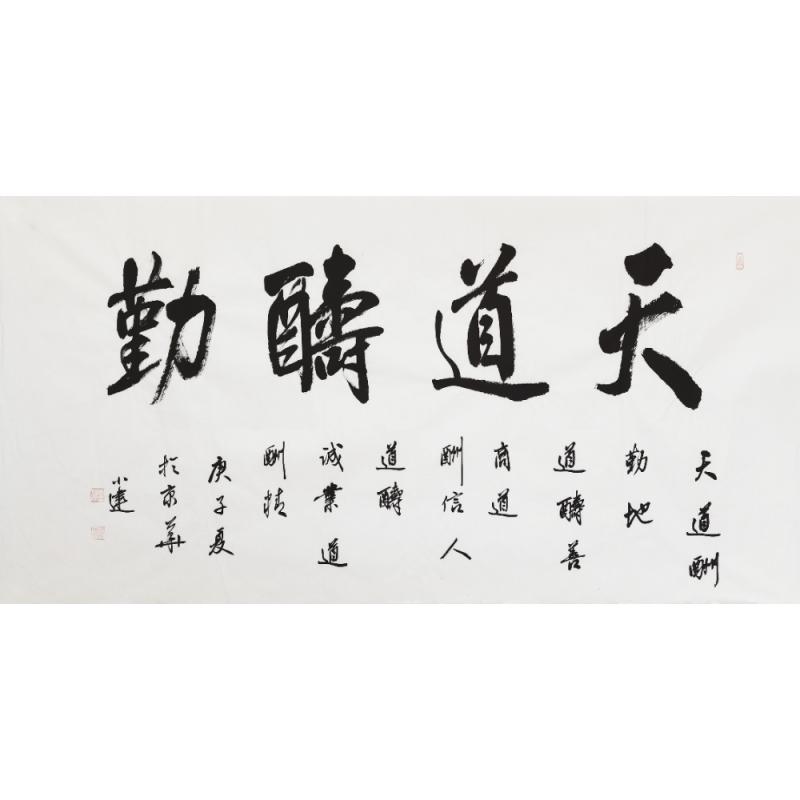 天道醻勤
天道酬
勤地
道醻善
商道
酬信人
道醻
誠業道
酬精
庚子夏
於京華
小